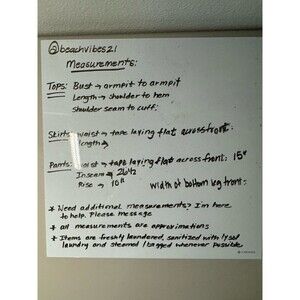 @beachvibes21
Measurements:
Tops: Bust → armpit to armpit
Length → shoulder to hem
Shoulder seam to cuff:
Skirts: waist → tape laying flat across front:
Length →
Pants: waist → tape laying flat across front: 15"
Inseam → 26 1/2
Rise → 10" width of bottom leg front:
* Need additional measurements? I'm here
to help. Please message
* all measurements are approximations
* Items are freshly laundered, sanitized with lysol
laundry and steamed / bagged whenever possible